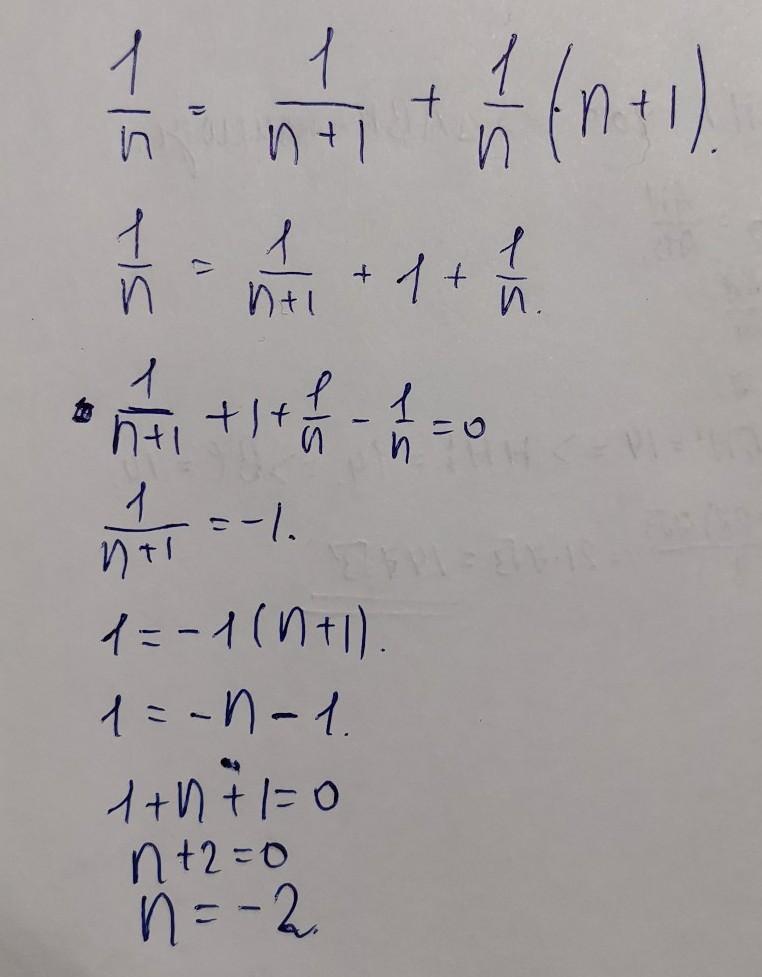 1/n = 1/(n+1) + 1/n (n+1).
1/n = 1/(n+1) + 1 + 1/n.
1/(n+1) + 1 + 1/n - 1/n = 0
1/(n+1) = -1.
1 = -1(n+1).
1 = -n - 1.
1+n+1=0
n+2=0
n=-2.